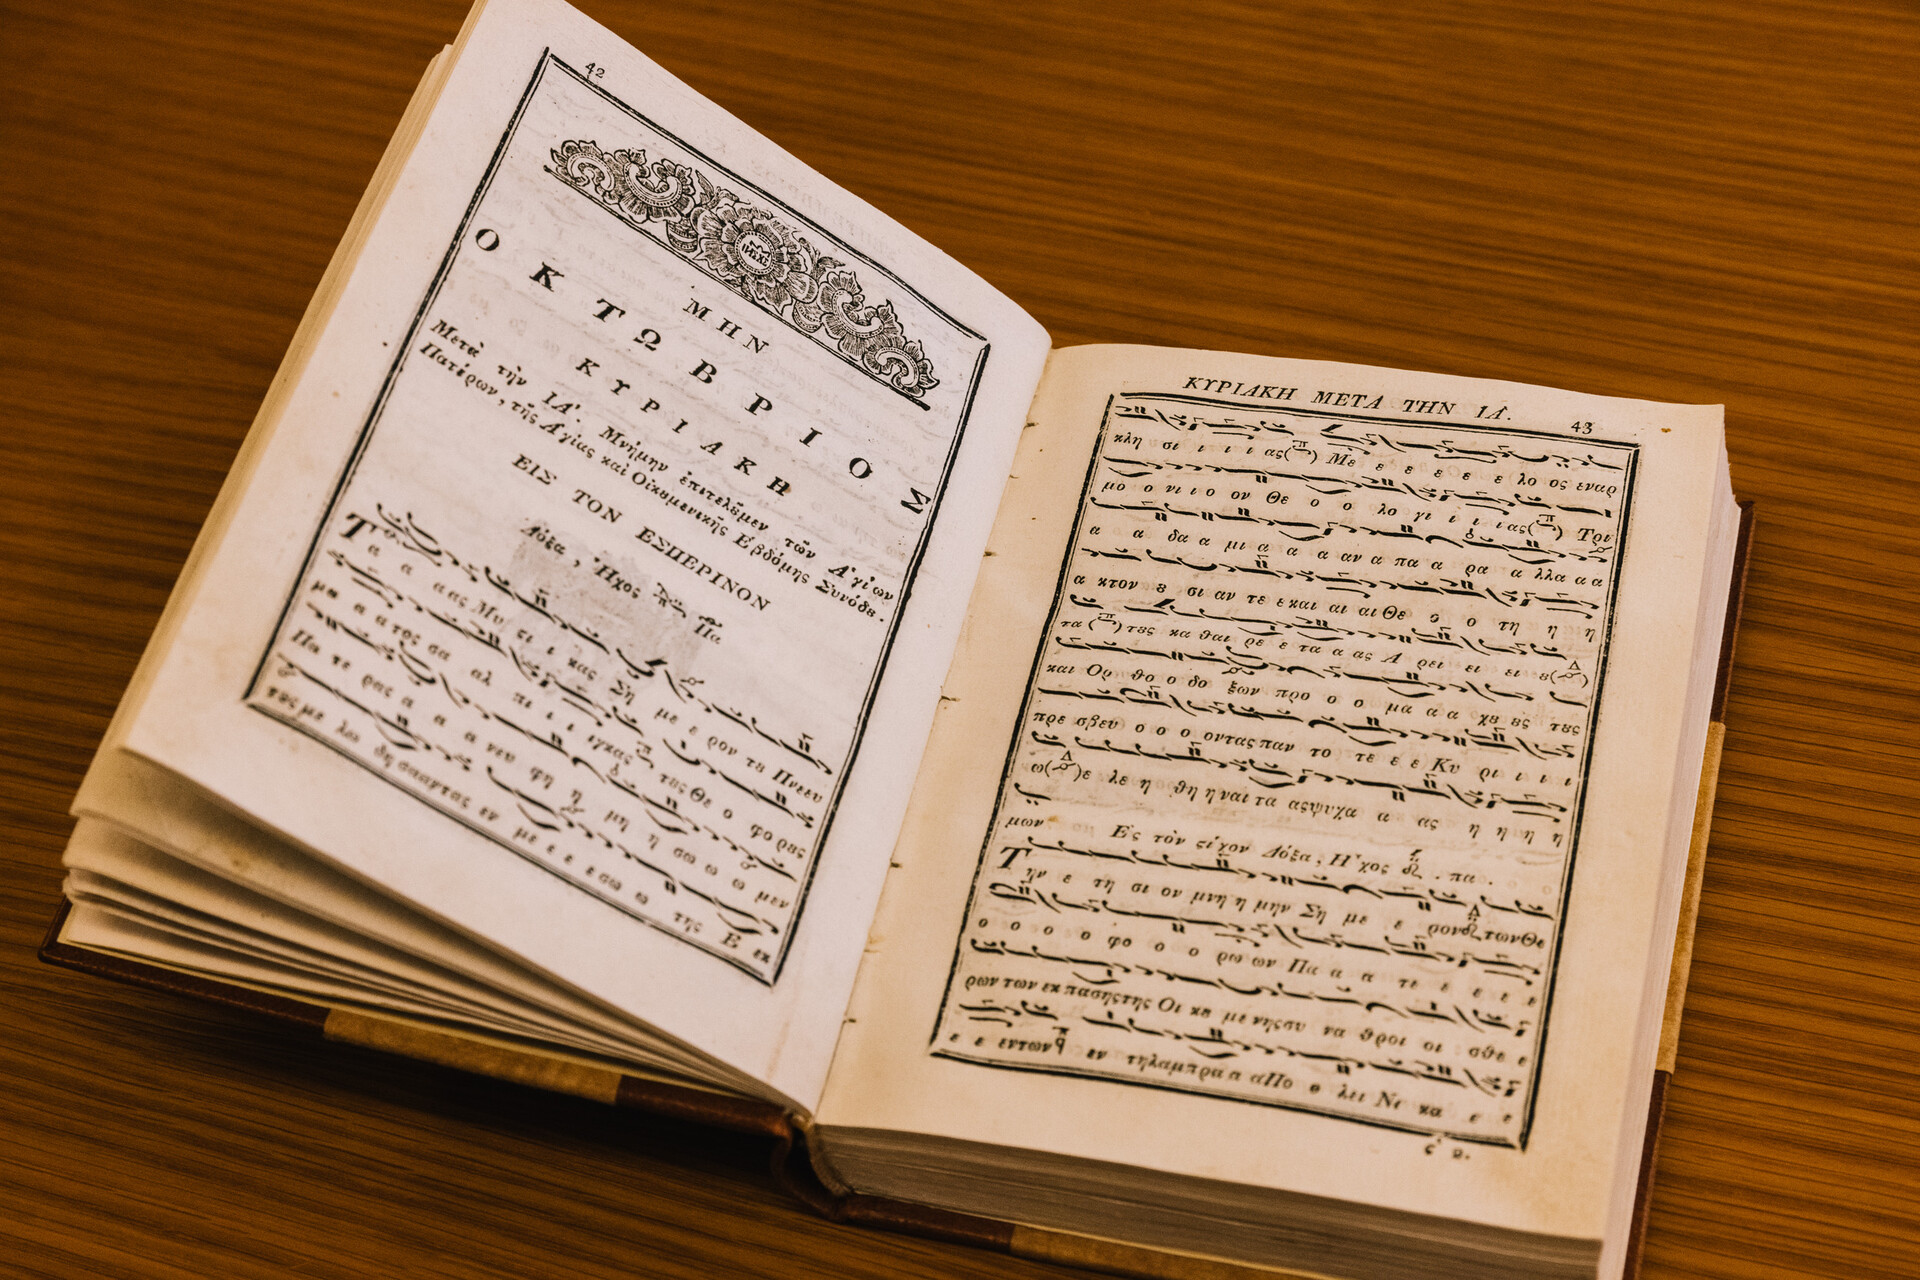 42
ΜΗΝ
ΟΚΤΩΒΡΙΟΣ
ΚΥΡΙΑΚΗ
Μετὰ τὴν ΙΑ'. Μνήμην ἐπιτελȣ͂μεν τῶν Ἁγίων
Πατέρων, τῆς Ἁγίας καὶ Οἰκυμενικῆς Ἑβδόμης Συνόδȣ.
ΕΙΣ ΤΟΝ ΕΣΠΕΡΙΝΟΝ
Δόξα, Ἦχος Πα
Τα α α ας Μυ ςι ι κας Ση με ε ρον τȣ Πνευ
μα α τος σα αλ πι ι ι ιγκας τȣς Θε ο φο ρȣς
Πα τε ρας α α α νευ φη η μη η σω ω ω μεν
τȣς με λω δη σαανταςεν με ε ε ε εσω ω της Ε
εκ
ΚΥΡΙΑΚΗ ΜΕΤΑ ΤΗΝ ΙΑ.
43
κλη σι ι ι ι ας Με ε ε ε ε ε λο ος εναρ
μο ο νι ι ο ον Θε ο ο λο γι ι ι ιας Τρι
α α δα α μι α α α αν α πα α ρα α λλα α α
α κτον ȣ σι αν τε ε και αι αι Θε ο ο τη η η
τα τȣς κα θαι ρε ε τα α ας Α ρει ει ει ȣ
και Ορ θο ο δο ξων προ ο ο μα α α χȣ ȣς τȣς
πρε σβευ ο ο ο οντας παν το τε ε ε Κυ ρι ι ι ι
ω ε λε η θη η ναι τα αςψυχα α ας η η η η
μων Εἰς τὸν ςίχον Δόξα, Ἦχος πα.
Την ε τη σι ον μνη η μην Ση με ε ρον τωνΘε
ο ο ο ο φο ο ο ρω ων Πα α α τε ε ε ε ε
ρων των εκ πασηςτης Οι κȣ με νηςσυ να θροι οι σθε ε
ε ε εντων εν τηλαμπρα α αΠο ο λει Νι κα ε ε